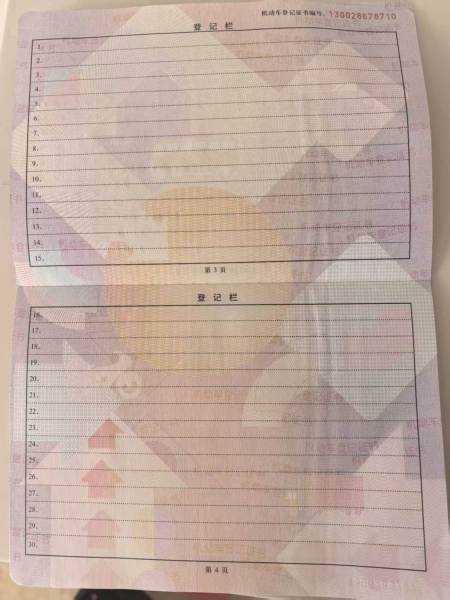 机动车登记证书编号：130028678710
登记栏
1.
2.
3.
4.
5.
6.
7.
8.
9.
10.
11.
12.
13.
14.
15.
第3页
登记栏
16.
17.
18.
19.
20.
21.
22.
23.
24.
25.
26.
27.
28.
29.
30.
第4页